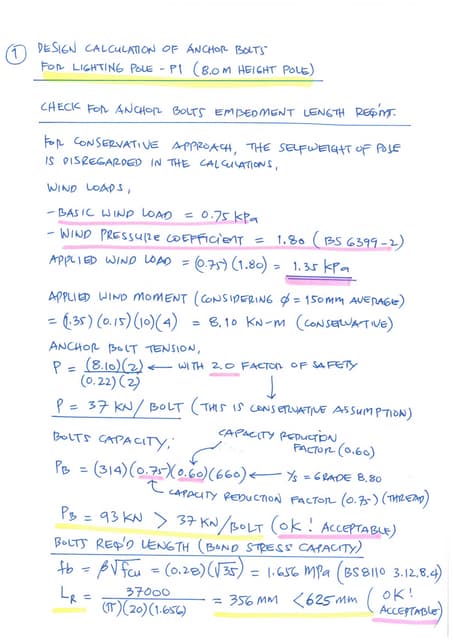 1 DESIGN CALCULATION OF ANCHOR BOLTS
FOR LIGHTING POLE - P1 (8.0 M HEIGHT POLE)
CHECK FOR ANCHOR BOLTS EMBEDMENT LENGTH REQ'MT.
FOR CONSERVATIVE APPROACH, THE SELFWEIGHT OF POLE
IS DISREGARDED IN THE CALCULATIONS,
WIND LOADS,
- BASIC WIND LOAD = 0.75 kPa
- WIND PRESSURE COEFFICIENT = 1.80 (BS 6399-2)
APPLIED WIND LOAD = (0.75)(1.80) = 1.35 kPa
APPLIED WIND MOMENT (CONSIDERING φ = 150MM AVERAGE)
= (1.35)(0.15)(10)(4) = 8.10 KN-M (CONSERVATIVE)
ANCHOR BOLT TENSION,
P = (8.10)(2) ← WITH 2.0 FACTOR OF SAFETY
(0.22)(2)
P = 37 KN/BOLT (THIS IS CONSERVATIVE ASSUMPTION)
BOLTS CAPACITY; CAPACITY REDUCTION
FACTOR (0.60)
PB = (314)(0.75)(0.60)(660) ← Ys = GRADE 8.80
CAPACITY REDUCTION FACTOR (0.75) (THREAD)
PB = 93 KN > 37 KN/BOLT (OK! ACCEPTABLE)
BOLTS REQ'D LENGTH (BOND STRESS CAPACITY)
fb = β√fcu = (0.28)(√35) = 1.656 MPa (BS8110 3.12.8.4)
LR = 37000 = 356 MM < 625 MM (OK!
(π)(20)(1.656) ACCEPTABLE)